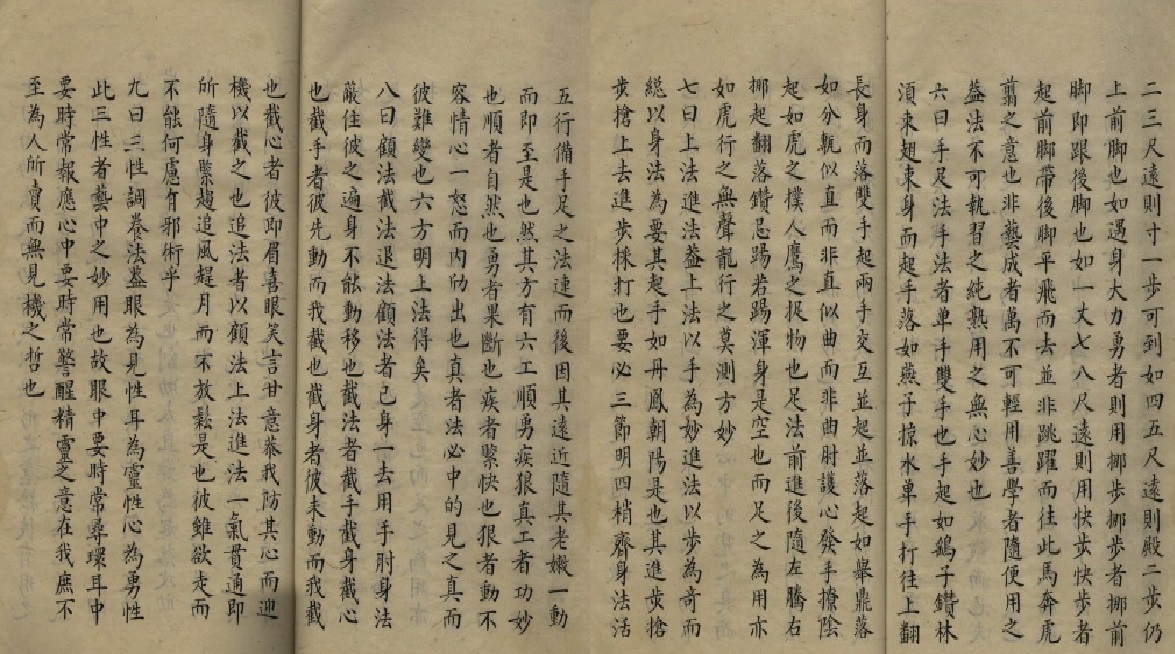 二三尺遠則寸一步可到如四五尺遠則殿二步仍
上前脚也如遇身大力勇者則用挪步挪步者挪前
脚即跟後脚也如一丈七八尺遠則用快步快步者
起前脚帶後脚平飛而去並非跳躍而往此馬奔虎
翦之意也非藝成者萬不可輕用善學者隨便用之
蓋法不可執習之純熟用之無心妙也
六曰手足法手法者单手雙手也手起如鷂子鑽林
須束翅束身而起手落如燕子掠水单手打往上翻
長身而落雙手起兩手交互並起並落起如舉鼎落
如分甎似直而非直似曲而非曲肘護心發手撩陰
起如虎之撲人鷹之捉物也足法前進後隨左騰右
挪起翻落鑽忌踢若踢渾身是空也而足之為用亦
如虎行之無聲龍行之莫測方妙
七曰上法進法蓋上法以手為妙進法以步為奇而
緫以身法為要其起手如丹鳳朝陽是也其進步搶
步搶上去進步採打也要必三節明四梢齊身法活
五行備手足之法連而後因其遠近隨其老嫩一動
而即至是也然其方有六工順勇疾狠真工者功妙
也順者自然也勇者果斷也疾者緊快也狠者動不
容情心一怒而內劲出也真者法必中的見之真而
彼難變也六方明上法得矣
八曰顧法截法退法顧法者已身一去用手肘身法
蔽住彼之遍身不能動移也截法者截手截身截心
也截手者彼先動而我截也截身者彼未動而我截
也截心者彼即眉喜眼笑言甘意恭我防其心而迎
機以截之也追法者以顧法上法進法一氣貫通即
所隨身緊趨追風趕月而不放鬆是也彼雖欲走而
不能何慮有邪術乎
九曰三性調養法蓋眼為見性耳為靈性心為勇性
此三性者藝中之妙用也故眼中要時常尋環耳中
要時常報應心中要時常警醒精靈之意在我庶不
至為人所賣而無見機之哲也